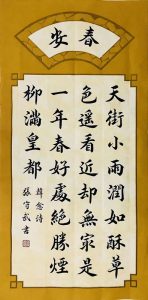 春安
天街小雨潤如酥草
色遥看近却無冣是
一年春好處絶勝煙
柳滿皇都
韓愈詩
張守武書